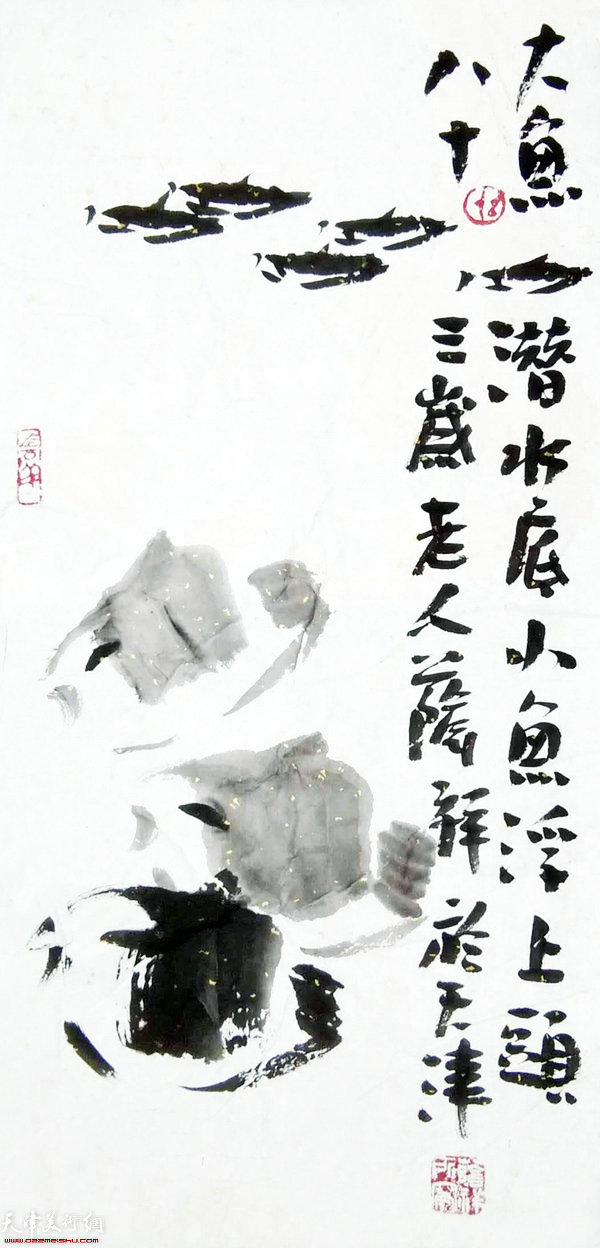 大魚潜水底小魚浮上頭
八十三歲老人蔭祥於天津
天津美術網
www.022meishu.com